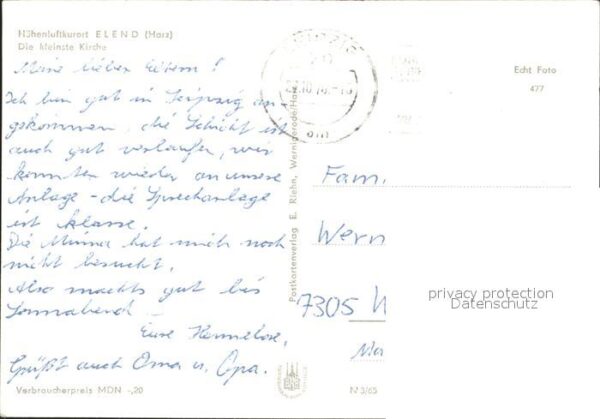 Höhenluftkurort ELEND (Harz)
Die kleinste Kirche
Meine lieben Eltern!
Ich bin gut in Leipzig an-
gekommen, die Schicht ist
auch gut verlaufen, wir
konnten wieder an unsere
Anlage - die Sprechanlage
ist klasse.
Die Minna hat mich noch
nicht besucht.
Also machts gut bis
Sonnabend -
Eure Hannelore.
Grüßt auch Oma u. Opa.
Verbraucherpreis MDN -,20
Postkartenverlag E. Riehn, Wernigerode/Harz
LEIPZIG
Echt Foto
477
Fam.
Wern
7305 W
privacy protection
Datenschutz
N 3/65